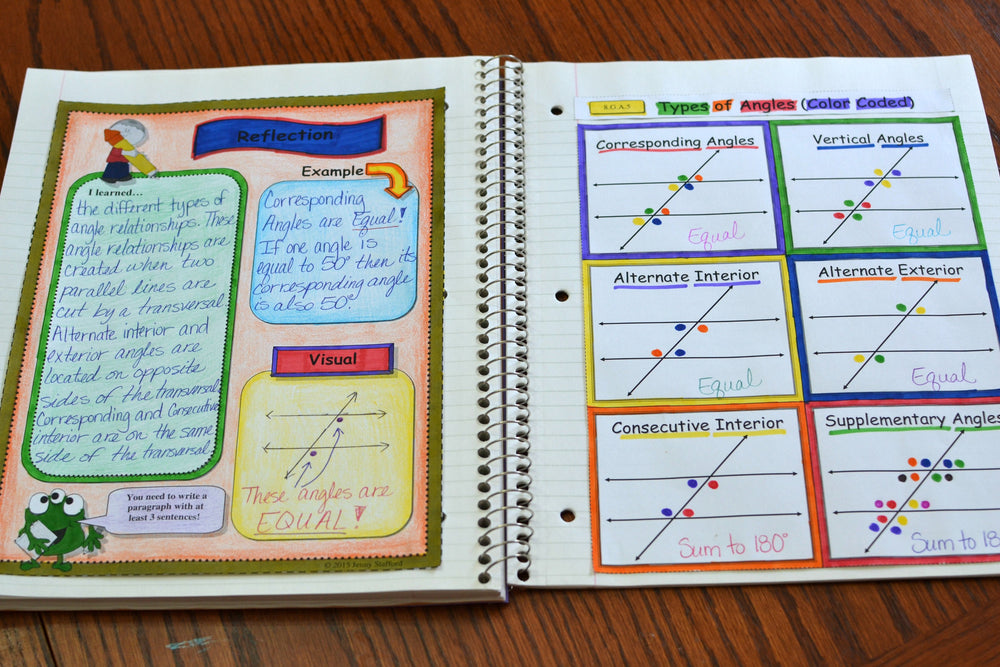 Reflection
I learned...
the different types of
angle relationships. These
angle relationships are
created when two
parallel lines are
cut by a transversal.
Alternate interior and
exterior angles are
located on opposite
sides of the transversal.
Corresponding and Consecutive
interior are on the same
side of the transversal.
You need to write a
paragraph with at
least 3 sentences!
Example
Corresponding
Angles are Equal!
If one angle is
equal to 50° then its
corresponding angle
is also 50°.
Visual
These angles are
EQUAL!
© 2015 Jenny Stafford
8.G.A.5
Types of Angles (Color Coded)
Corresponding Angles
Equal
Vertical Angles
Equal
Alternate Interior
Equal
Alternate Exterior
Equal
Consecutive Interior
Sum to 180°
Supplementary Angles
Sum to 18